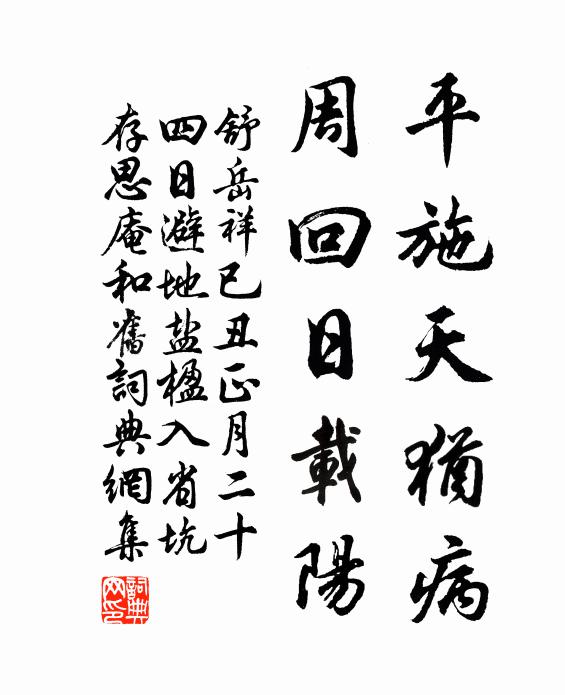 平施天猶病
周回日載陽
舒岳祥已丑正月二十
四日避地盐楹入省坑
存思庵和舊詞典網集
詞典